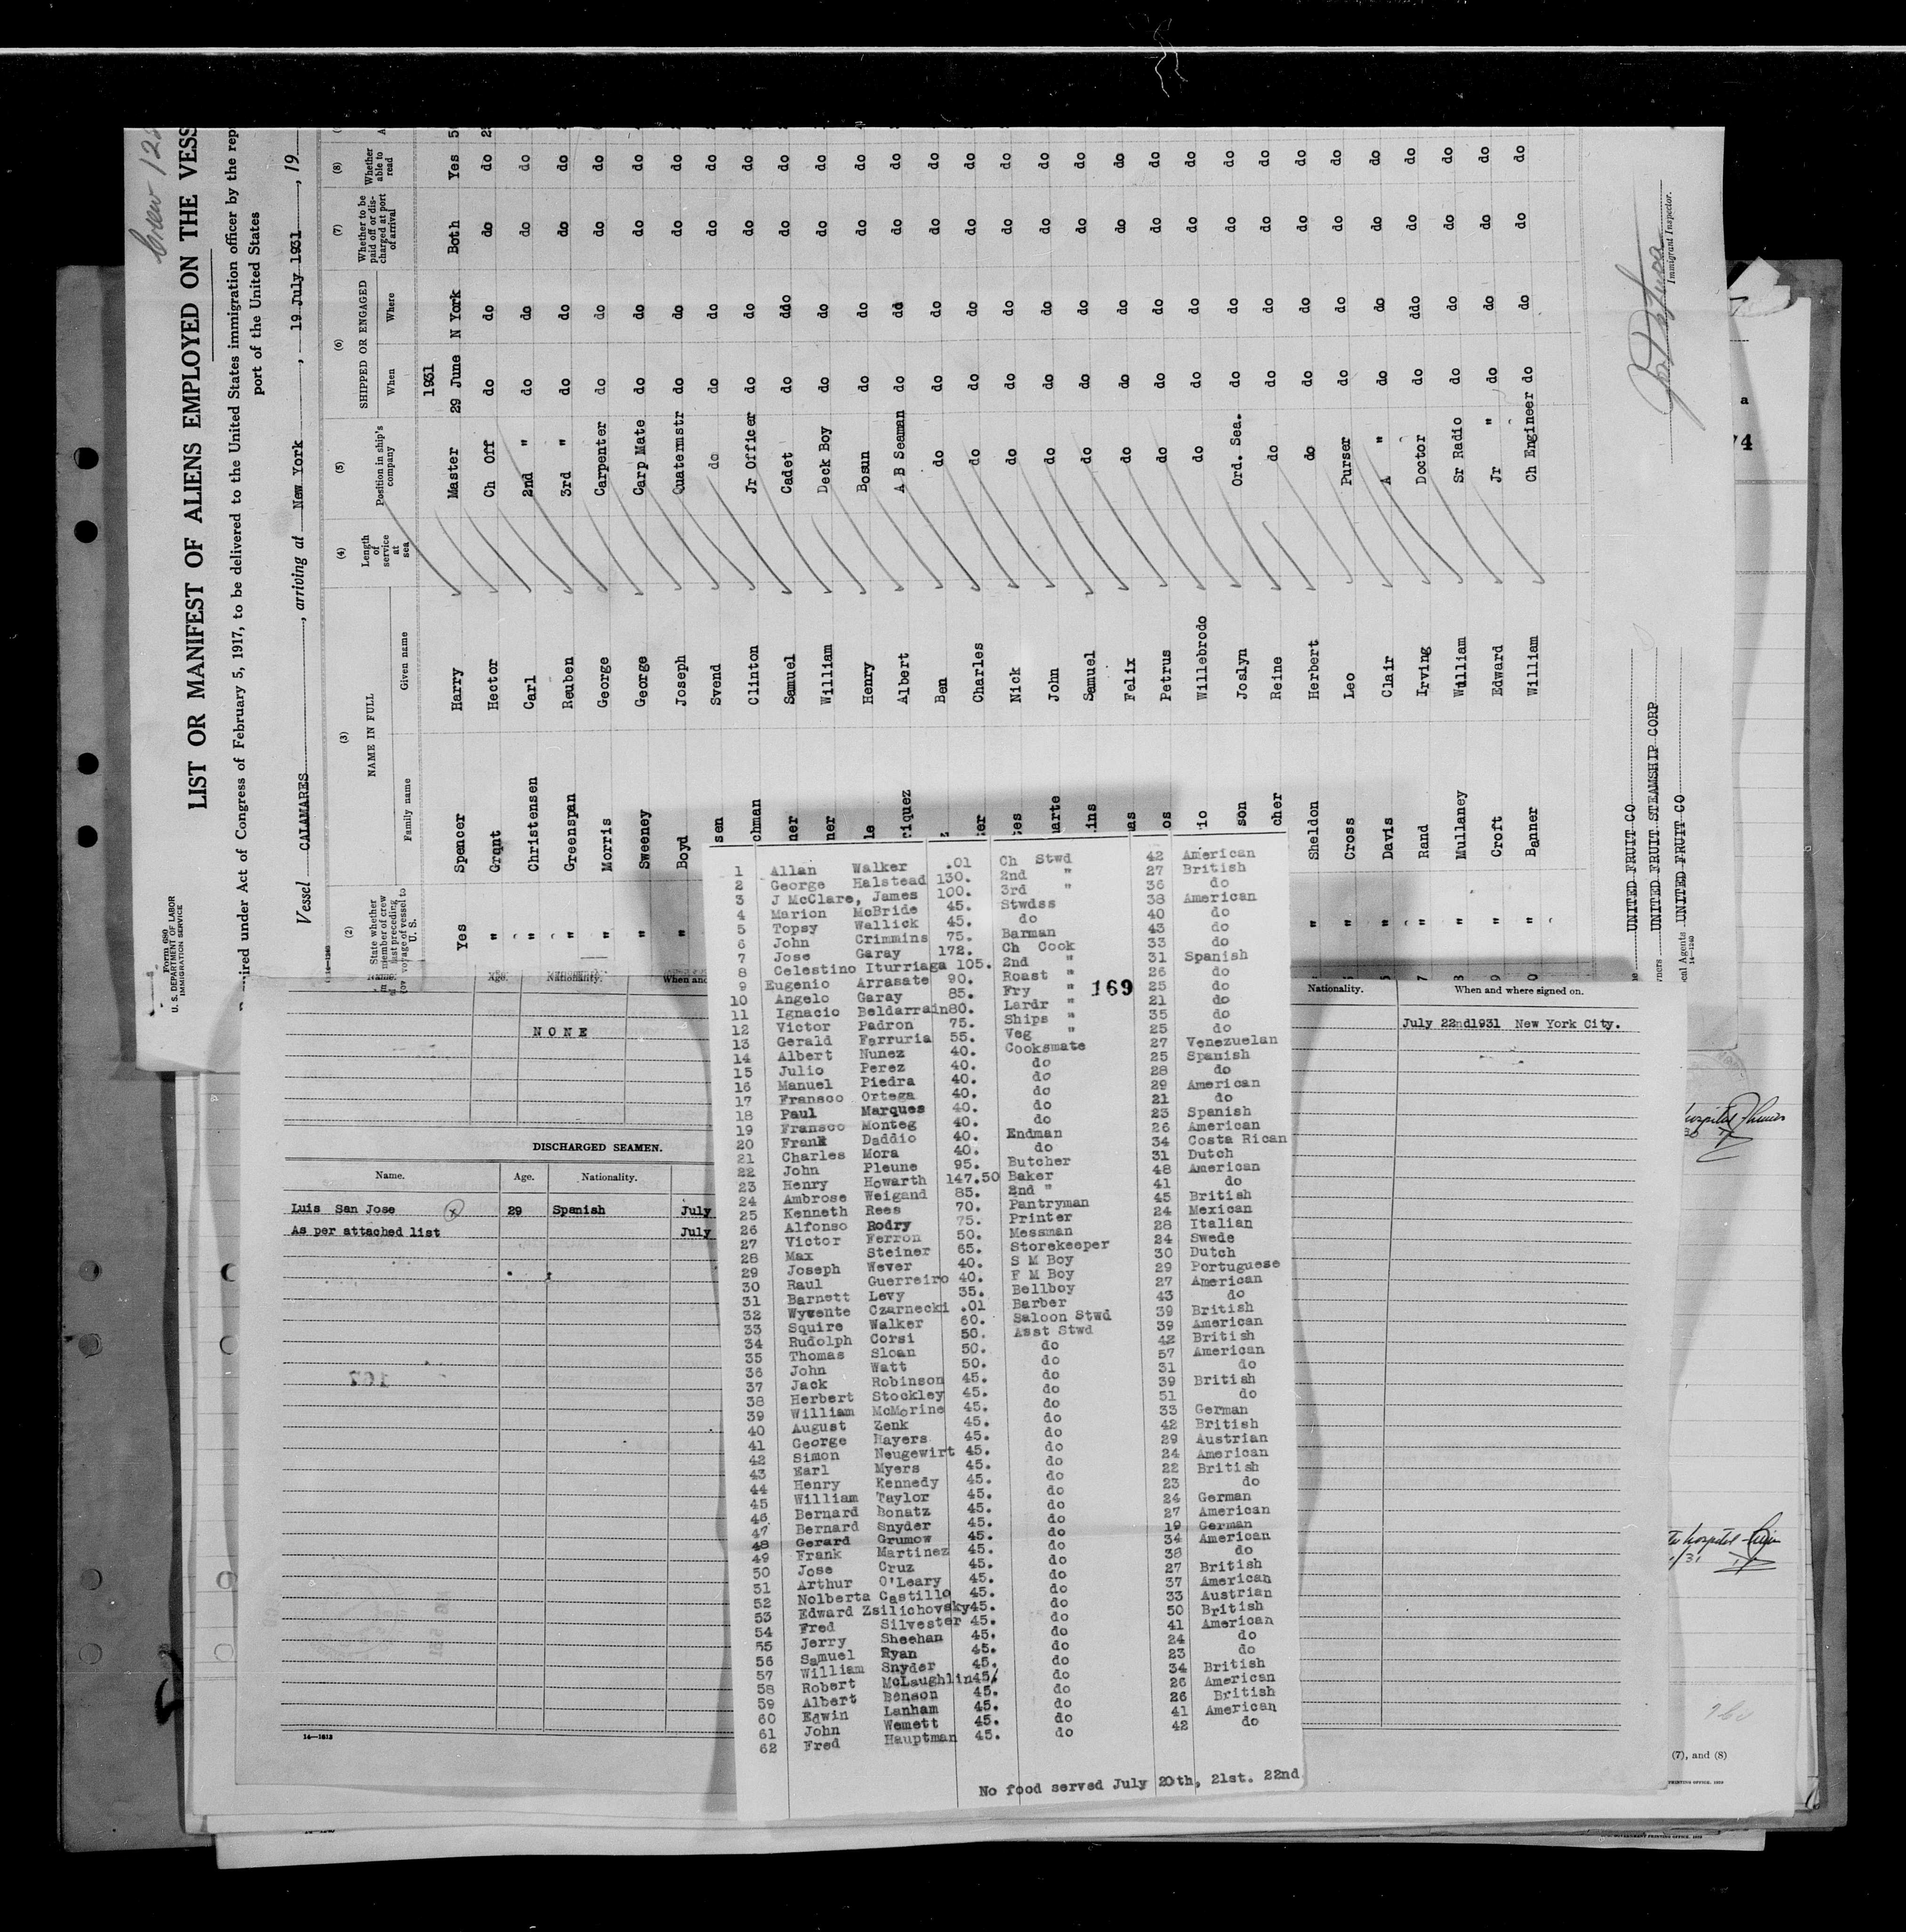 Form 680
U. S. DEPARTMENT OF LABOR
IMMIGRATION SERVICE
LIST OR MANIFEST OF ALIENS EMPLOYED ON THE VESS
required under Act of Congress of February 5, 1917, to be delivered to the United States immigration officer by the rep
port of the United States
Vessel CALAMARES, arriving at New York, 19 July 1931, 19
(2) (3) (4) (5) (6) (7) (8)
State whether member of crew last preceding voyage of vessel to U. S.
NAME IN FULL
Family name Given name
Length of service at sea
Position in ship's company
SHIPPED OR ENGAGED
When Where
Whether to be paid off or discharged at port of arrival
Whether able to read
1931
Yes Spencer Harry Master 29 June N York Both Yes 5
" Grant Hector Ch Off do do do do 2
" Christensen Carl 2nd " do do do do
" Greenspan Reuben 3rd " do do do do
" Morris George Carpenter do do do do
" Sweeney George Carp Mate do do do do
" Boyd Joseph Quatermstr do do do do
sen Svend do do do do do
chman Clinton Jr Officer do do do do
ner Samuel Cadet do ddo do do
ner William Deck Boy do do do do
le Henry Bosun do do do do
riquez Albert A B Seaman do do do do
Ben do do do do do
er Charles do do do do do
es Nick do do do do do
uarte John do do do do do
ins Samuel do do do do do
as Felix do do do do do
os Petrus do do do do do
io Willebrodo do do do do
son Joslyn Ord. Sea. do do do do
cher Reine do do do do do
" Sheldon Herbert do do do do do
" Cross Leo Purser do do do do
" Davis Clair A " do do do do
" Rand Irving Doctor do ddo do do
" Mullaney William Sr Radio do do do do
" Croft Edward Jr " do do do do
" Banner William Ch Engineer do do do do
UNITED FRUIT CO
UNITED FRUIT STEAMSHIP CORP
UNITED FRUIT CO
14-1240
Immigrant Inspector.
Name. Age. Nationality. When and
NONE
DISCHARGED SEAMEN.
Name. Age. Nationality.
Luis San Jose 29 Spanish July
As per attached list July
14-1813
Nationality. When and where signed on.
July 22nd1931 New York City.
169
1 Allan Walker .01 Ch Stwd 42 American
2 George Halstead 130. 2nd " 27 British
3 J McClare, James 100. 3rd " 36 do
4 Marion McBride 45. Stwdss 38 American
5 Topsy Wallick 45. do 40 do
6 John Crimmins 75. Barman 43 do
7 Jose Garay 172. Ch Cook 33 do
8 Celestino Iturriaga 105. 2nd " 31 Spanish
9 Eugenio Arrasate 90. Roast " 26 do
10 Angelo Garay 85. Fry " 25 do
11 Ignacio Beldarrain80. Lardr " 21 do
12 Victor Padron 75. Ships " 35 do
13 Gerald Farruria 55. Veg " 25 do
14 Albert Nunez 40. Cooksmate 27 Venezuelan
15 Julio Perez 40. do 25 Spanish
16 Manuel Piedra 40. do 28 do
17 Fransco Ortega 40. do 29 American
18 Paul Marques 40. do 21 do
19 Fransco Monteg 40. do 23 Spanish
20 Frank Daddio 40. Endman 26 American
21 Charles Mora 40. do 34 Costa Rican
22 John Pleune 95. Butcher 31 Dutch
23 Henry Howarth 147.50 Baker 48 American
24 Ambrose Weigand 85. 2nd " 41 do
25 Kenneth Rees 70. Pantryman 45 British
26 Alfonso Rodry 75. Printer 24 Mexican
27 Victor Ferron 50. Messman 28 Italian
28 Max Steiner 65. Storekeeper 24 Swede
29 Joseph Wever 40. S M Boy 30 Dutch
30 Raul Guerreiro 40. F M Boy 29 Portuguese
31 Barnett Levy 35. Bellboy 27 American
32 Wywente Czarnecki .01 Barber 43 do
33 Squire Walker 60. Saloon Stwd 39 British
34 Rudolph Corsi 50. Asst Stwd 39 American
35 Thomas Sloan 50. do 42 British
36 John Watt 50. do 57 American
37 Jack Robinson 45. do 31 do
38 Herbert Stockley 45. do 39 British
39 William McMorine 45. do 51 do
40 August Zenk 45. do 33 German
41 George Hayers 45. do 42 British
42 Simon Neugewirt 45. do 29 Austrian
43 Earl Myers 45. do 24 American
44 Henry Kennedy 45. do 22 British
45 William Taylor 45. do 23 do
46 Bernard Bonatz 45. do 24 German
47 Bernard Snyder 45. do 27 American
48 Gerard Grumow 45. do 19 German
49 Frank Martinez 45. do 34 American
50 Jose Cruz 45. do 38 do
51 Arthur O'Leary 45. do 27 British
52 Nolberta Castillo 45. do 37 American
53 Edward Zsilichovsky45. do 33 Austrian
54 Fred Silvester 45. do 50 British
55 Jerry Sheehan 45. do 41 American
56 Samuel Ryan 45. do 24 do
57 William Snyder 45. do 23 do
58 Robert McLaughlin45/ do 34 British
59 Albert Benson 45. do 26 American
60 Edwin Lanham 45. do 26 British
61 John Wemett 45. do 41 American
62 Fred Hauptman 45. do 42 do
No food served July 20th, 21st. 22nd
(7), and (8)